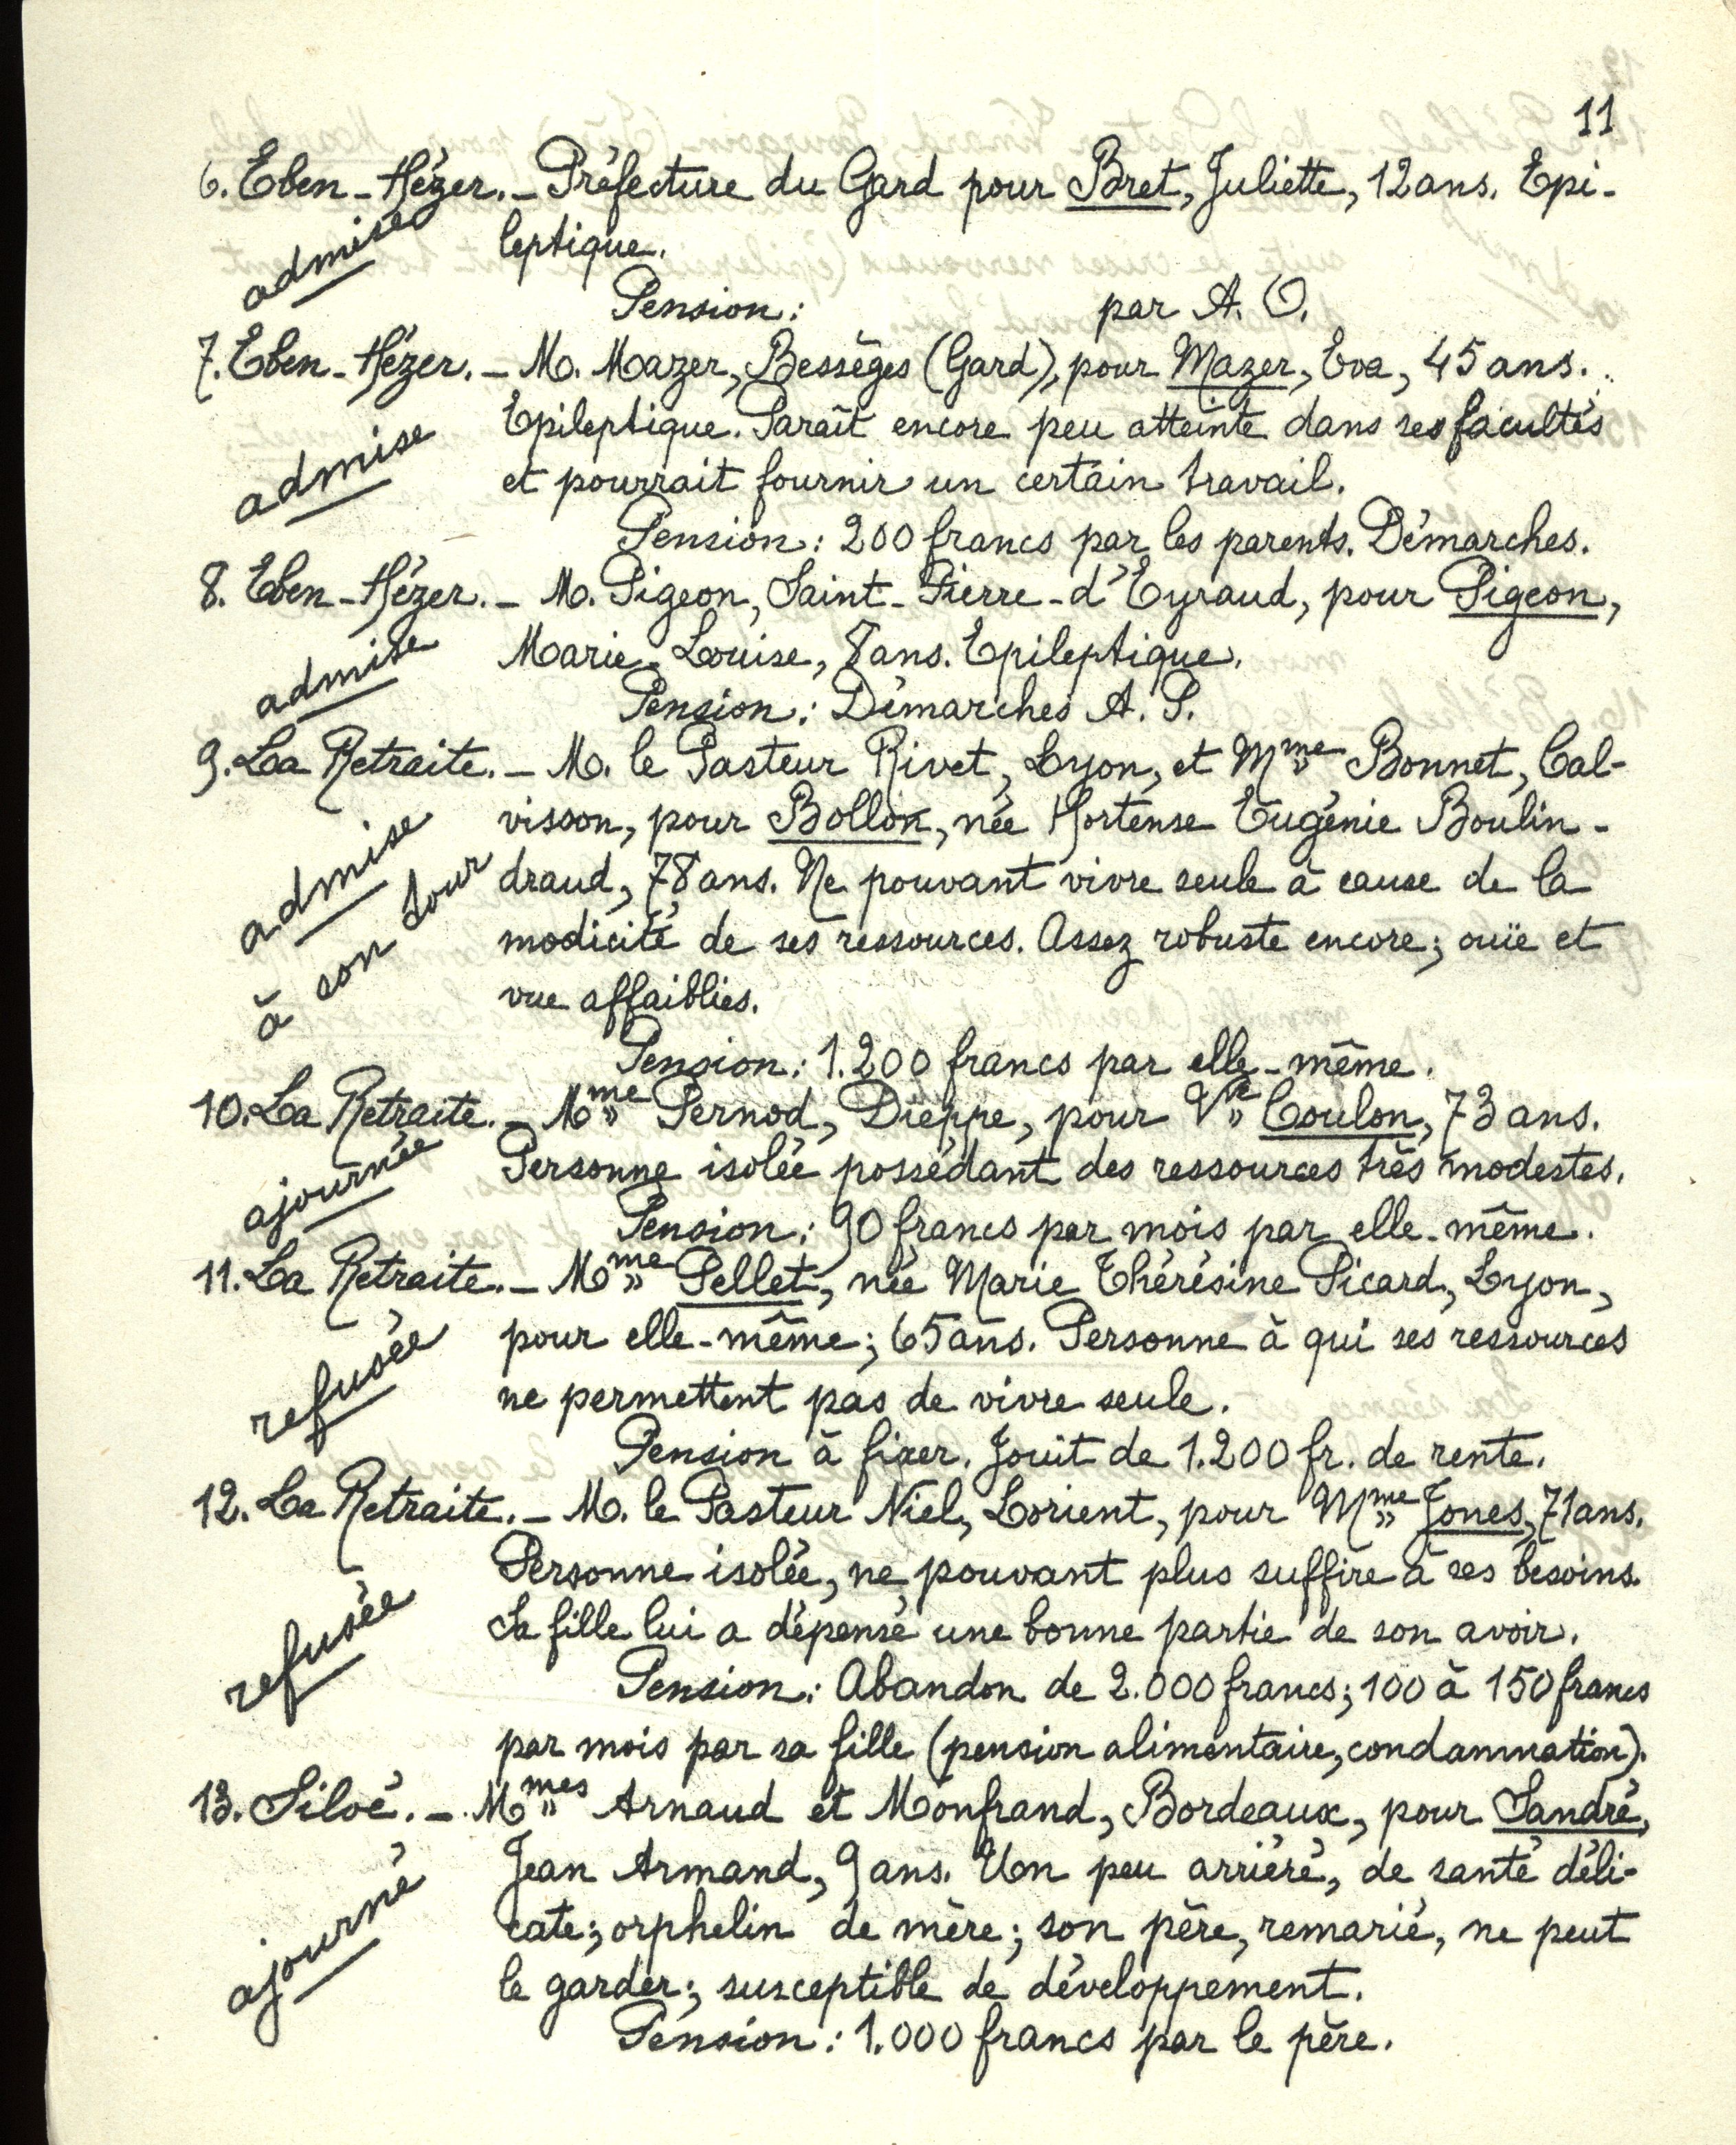 11
6. Eben-Hézer. - Préfecture du Gard pour Bret, Juliette, 12 ans. Epi-
admise
leptique.
Pension : par A. O.
7. Eben-Hézer. - M. Mazer, Bessèges (Gard), pour Mazer, Eva, 45 ans.
Epileptique. Paraît encore peu atteinte dans ses facultés
admise
et pourrait fournir un certain travail.
Pension : 200 francs par les parents. Démarches.
8. Eben-Hézer. - M. Pigeon, Saint-Pierre-d'Eyraud, pour Pigeon,
admise
Marie-Louise, 8 ans. Epileptique.
Pension : Démarches A. P.
9. La Retraite. - M. le Pasteur Rivet, Lyon, et Mme Bonnet, Cal-
visson, pour Bollon, née Hortense Eugénie Boulin-
admise
à son tour
draud, 78 ans. Ne pouvant vivre seule à cause de la
modicité de ses ressources. Assez robuste encore ; ouïe et
vue affaiblies.
Pension : 1.200 francs par elle-même.
10. La Retraite. - Mme Pernod, Dieppe, pour Vve Coulon, 73 ans.
ajournée
Personne isolée possédant des ressources très modestes.
Pension : 90 francs par mois par elle-même.
11. La Retraite. - Mme Pellet, née Marie Thérésine Picard, Lyon,
pour elle-même ; 65 ans. Personne à qui ses ressources
refusée
ne permettent pas de vivre seule.
Pension à fixer. Jouit de 1.200 fr. de rente.
12. La Retraite. - M. le Pasteur Niel, Lorient, pour Mme Jones, 71 ans.
Personne isolée, ne pouvant plus suffire à ses besoins.
refusée
Sa fille lui a dépensé une bonne partie de son avoir.
Pension : Abandon de 2.000 francs ; 100 à 150 francs
par mois par sa fille (pension alimentaire, condamnation).
13. Siloé. - Mmes Arnaud et Monfrand, Bordeaux, pour Sandré,
Jean Armand, 9 ans. Un peu arriéré, de santé déli-
ajourné
cate ; orphelin de mère ; son père, remarié, ne peut
le garder ; susceptible de développement.
Pension : 1.000 francs par le père.